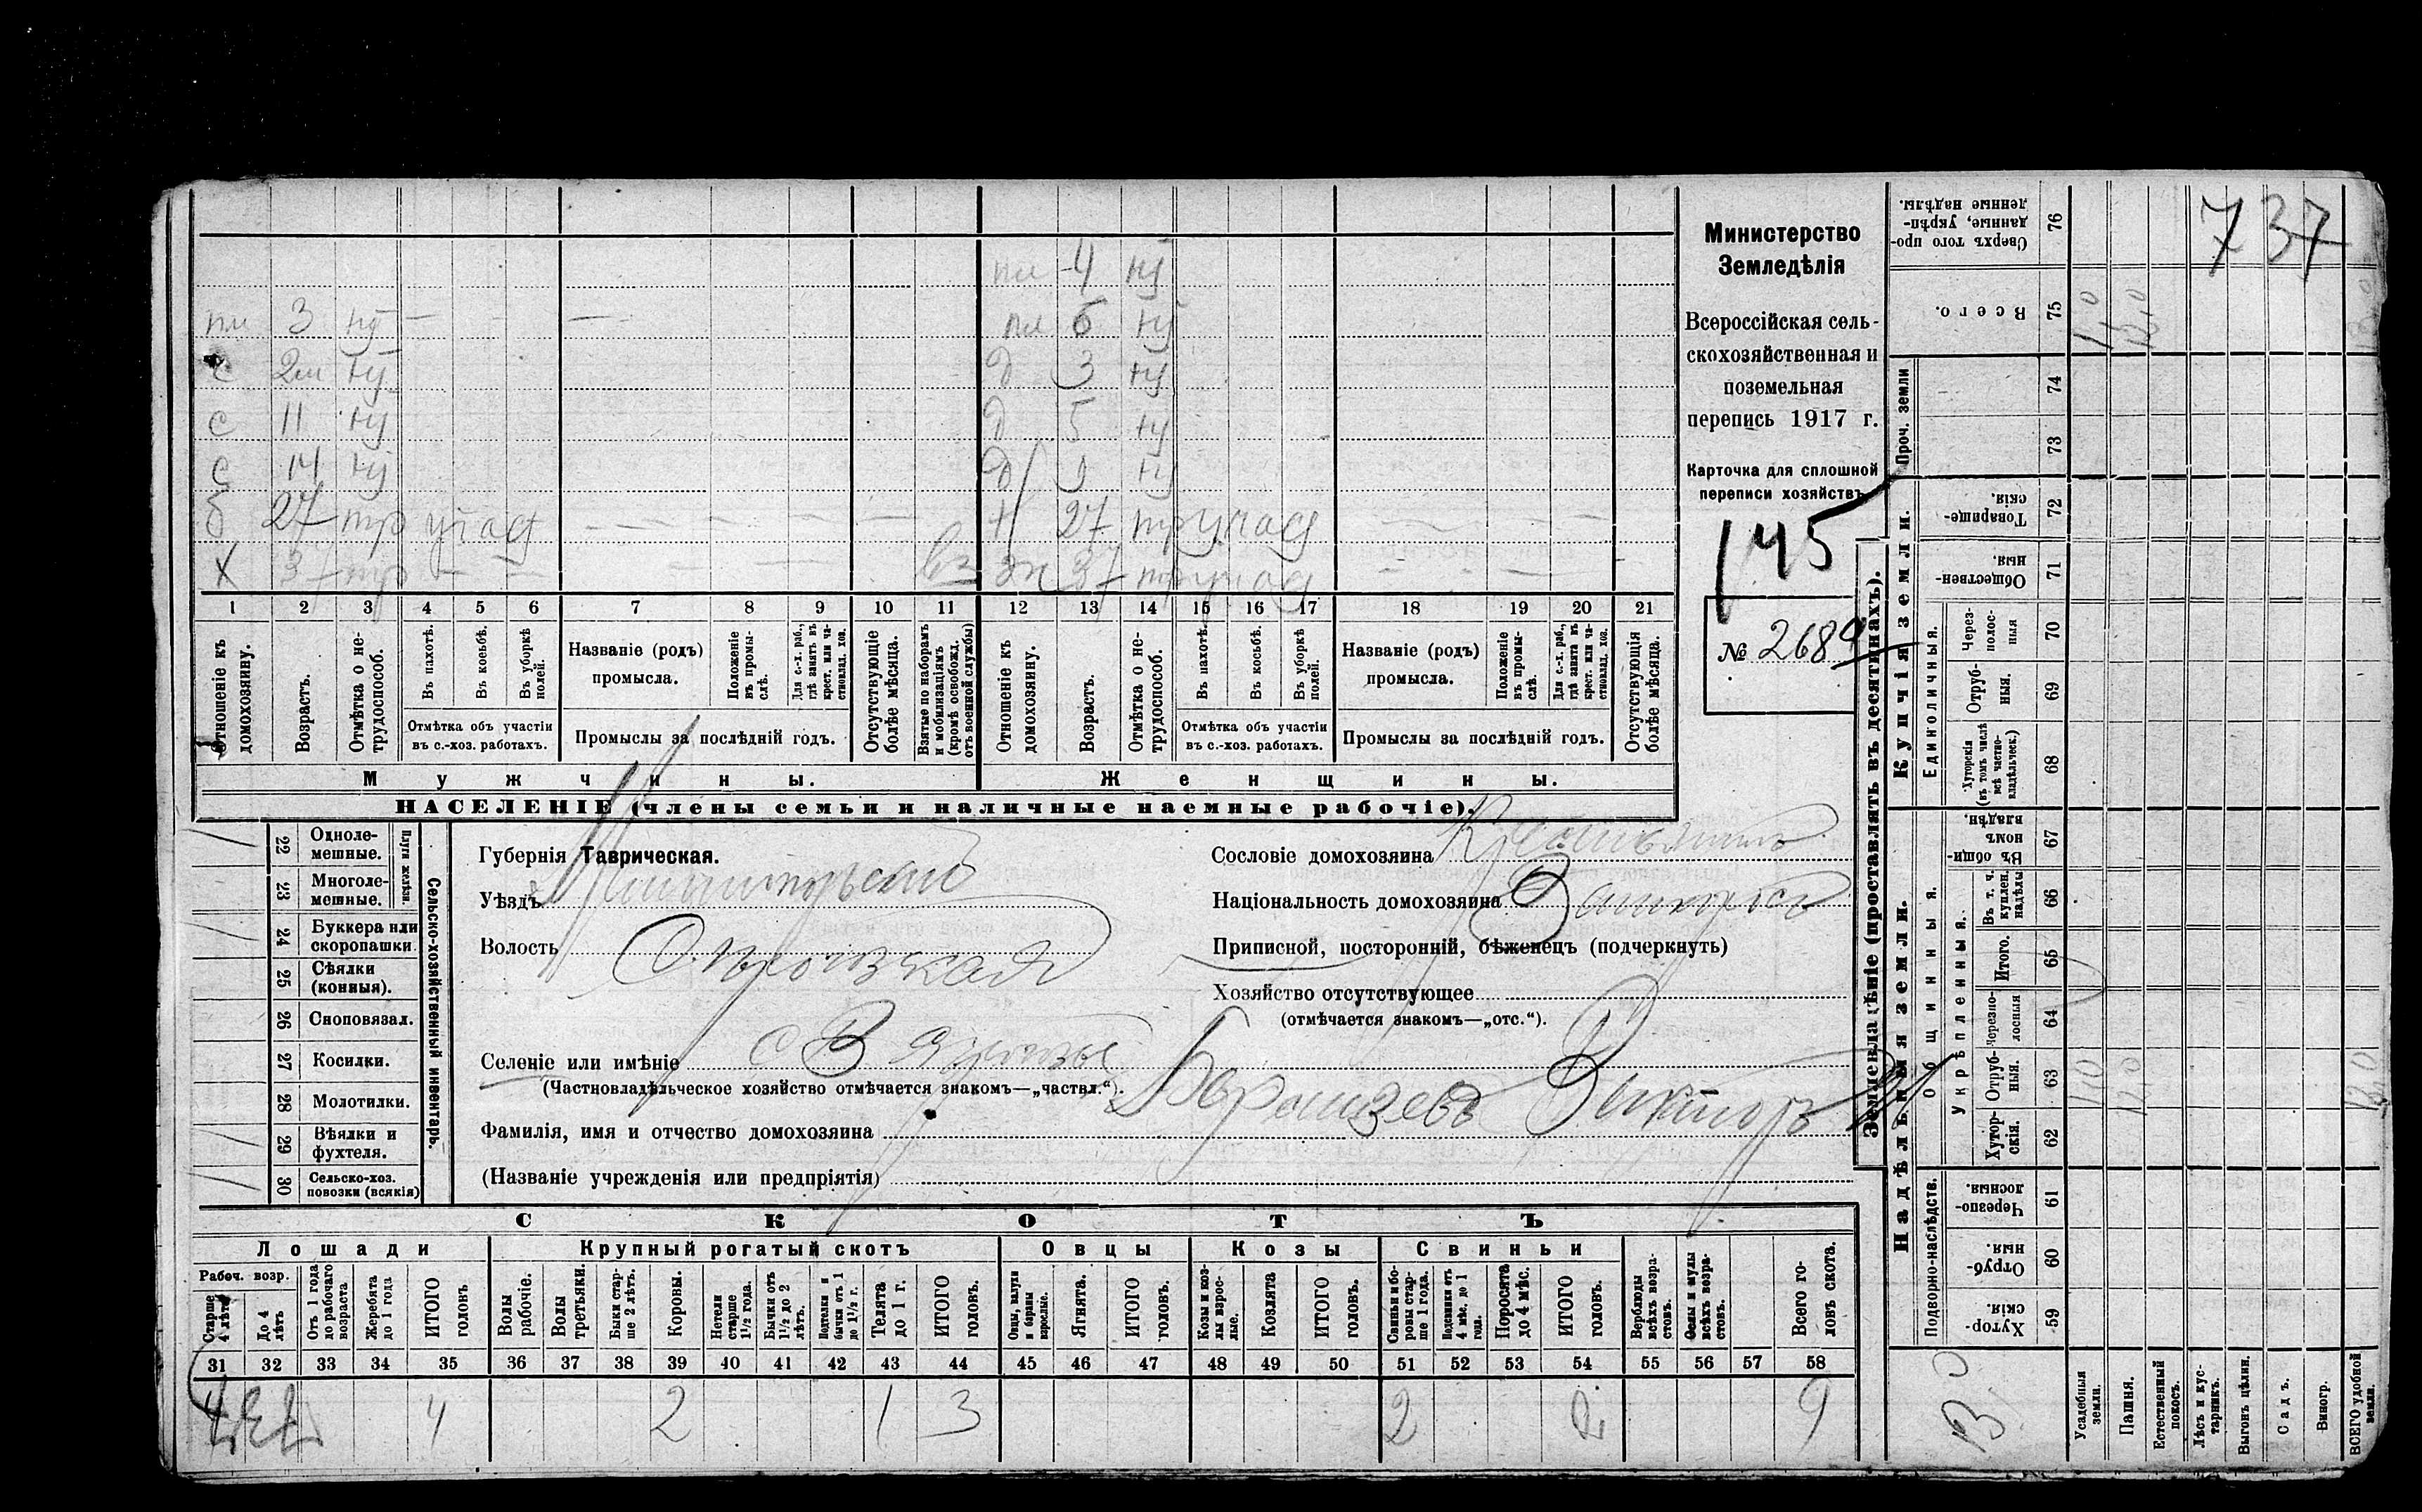 пл 4 нț
пл 3 нț — — пл 6 нț
с 2м нț д 3 нț
с 11 нț д 5 нț
с 14 нț д 9 нț
б 27 тр участ — — — — — н 27 тр участ — — —
х 37 тр — — — — — — вз эк 37 тр участ — — —
1 2 3 4 5 6 7 8 9 10 11 12 13 14 15 16 17 18 19 20 21
Отношеніе къ домохозяину.
Возрастъ.
Отмѣтка о нетрудоспособ.
Въ пахотѣ.
Въ косьбѣ.
Въ уборкѣ полей.
Отмѣтка объ участіи въ с.-хоз. работахъ.
Названіе (родъ) промысла.
Положеніе въ промыслѣ.
Для с.-х. раб., гдѣ занятъ въ крест. или частновлад. хоз.
Промыслы за послѣдній годъ.
Отсутствующіе болѣе мѣсяца.
Взятые по наборамъ и мобилизаціямъ (кромѣ освобожд. отъ военной службы)
Отношеніе къ домохозяину.
Возрастъ.
Отмѣтка о нетрудоспособ.
Въ пахотѣ.
Въ косьбѣ.
Въ уборкѣ полей.
Отмѣтка объ участіи въ с.-хоз. работахъ.
Названіе (родъ) промысла.
Положеніе въ промыслѣ.
Для с.-х. раб., гдѣ занята въ крест. или частновлад. хоз.
Промыслы за послѣдній годъ.
Отсутствующія болѣе мѣсяца.
Мужчины. Женщины.
НАСЕЛЕНІЕ (члены семьи и наличные наемные рабочіе).
Министерство
Земледѣлія
Всероссійская сель-
скохозяйственная и
поземельная
перепись 1917 г.
Карточка для сплошной
переписи хозяйствъ
145
№ 2689
22 Одноле-мешные.
23 Многоле-мешные.
Плуги желѣзн.
24 Буккера или скоропашки.
25 Сѣялки (конныя).
26 Сноповязал.
27 Косилки.
28 Молотилки.
29 Вѣялки и фухтеля.
30 Сельско-хоз. повозки (всякія)
Сельско-хозяйственный инвентарь.
Губернія Таврическая.
Уѣздъ
Волость
Селеніе или имѣніе
(Частновладѣльческое хозяйство отмѣчается знакомъ—„частвл.“).
Фамилія, имя и отчество домохозяина
(Названіе учрежденія или предпріятія)
Сословіе домохозяина Крестьянинъ
Національность домохозяина
Приписной, посторонній, бѣженецъ (подчеркнуть)
Хозяйство отсутствующее
(отмѣчается знакомъ—„отс.“).
СКОТЪ
Лошади Крупный рогатый скотъ Овцы Козы Свиньи
Рабоч. возр.
Старше 4 лѣтъ
До 4 лѣтъ
Отъ 1 года до рабочаго возраста
Жеребята до 1 года
ИТОГО головъ
Волы рабочіе.
Волы третьяки.
Быки старше 2 лѣтъ.
Коровы.
Нетели старше 1½ года.
Бычки отъ 1½ до 2 лѣтъ.
Подтелки и бычки отъ 1 до 1½ г.
Телята до 1 г.
ИТОГО головъ.
Овцы, валухи и бараны взрослые.
Ягнята.
ИТОГО головъ.
Козы и козлы взрослые.
Козлята
ИТОГО головъ.
Свиньи и боровы старше 1 года.
Подсвинки отъ 4 мѣс. до 1 года.
Поросята до 4 мѣс.
ИТОГО головъ.
Верблюды всѣхъ возрастовъ.
Ослы и мулы всѣхъ возрастовъ.
Всего головъ скота.
31 32 33 34 35 36 37 38 39 40 41 42 43 44 45 46 47 48 49 50 51 52 53 54 55 56 57 58
4 4 2 1 3 2 2 9
737
Землевладѣніе (проставлять въ десятинахъ).
Надѣльныя земли. Купчія земли. Проч. земли
Подворно-наслѣдств.
Общинныя.
Укрѣпленныя.
Единоличныя.
Хуторскія. 59
Отрубныя. 60
Черезполосныя. 61
Хуторскія. 62
Отрубныя. 63
Черезполосныя 64
Итого. 65
Въ т. ч. куплен. надѣлы 66
Въ общинномъ владѣн. 67
Хуторскія (въ томъ числѣ всѣ частновладѣльческ.) 68
Отрубныя. 69
Черезполосныя 70
Общественныя. 71
Товарищескія. 72
73
74
Всего. 75
Сверхъ того проданные, укрѣпленные надѣлы. 76
Усадебныя земли. 1,0 1,0
Пашня. 12,0 12,0
Естественный покосъ.
Лѣсъ и кустарникъ.
Выгонъ цѣлин.
Садъ.
Виногр.
ВСЕГО удобной земли.